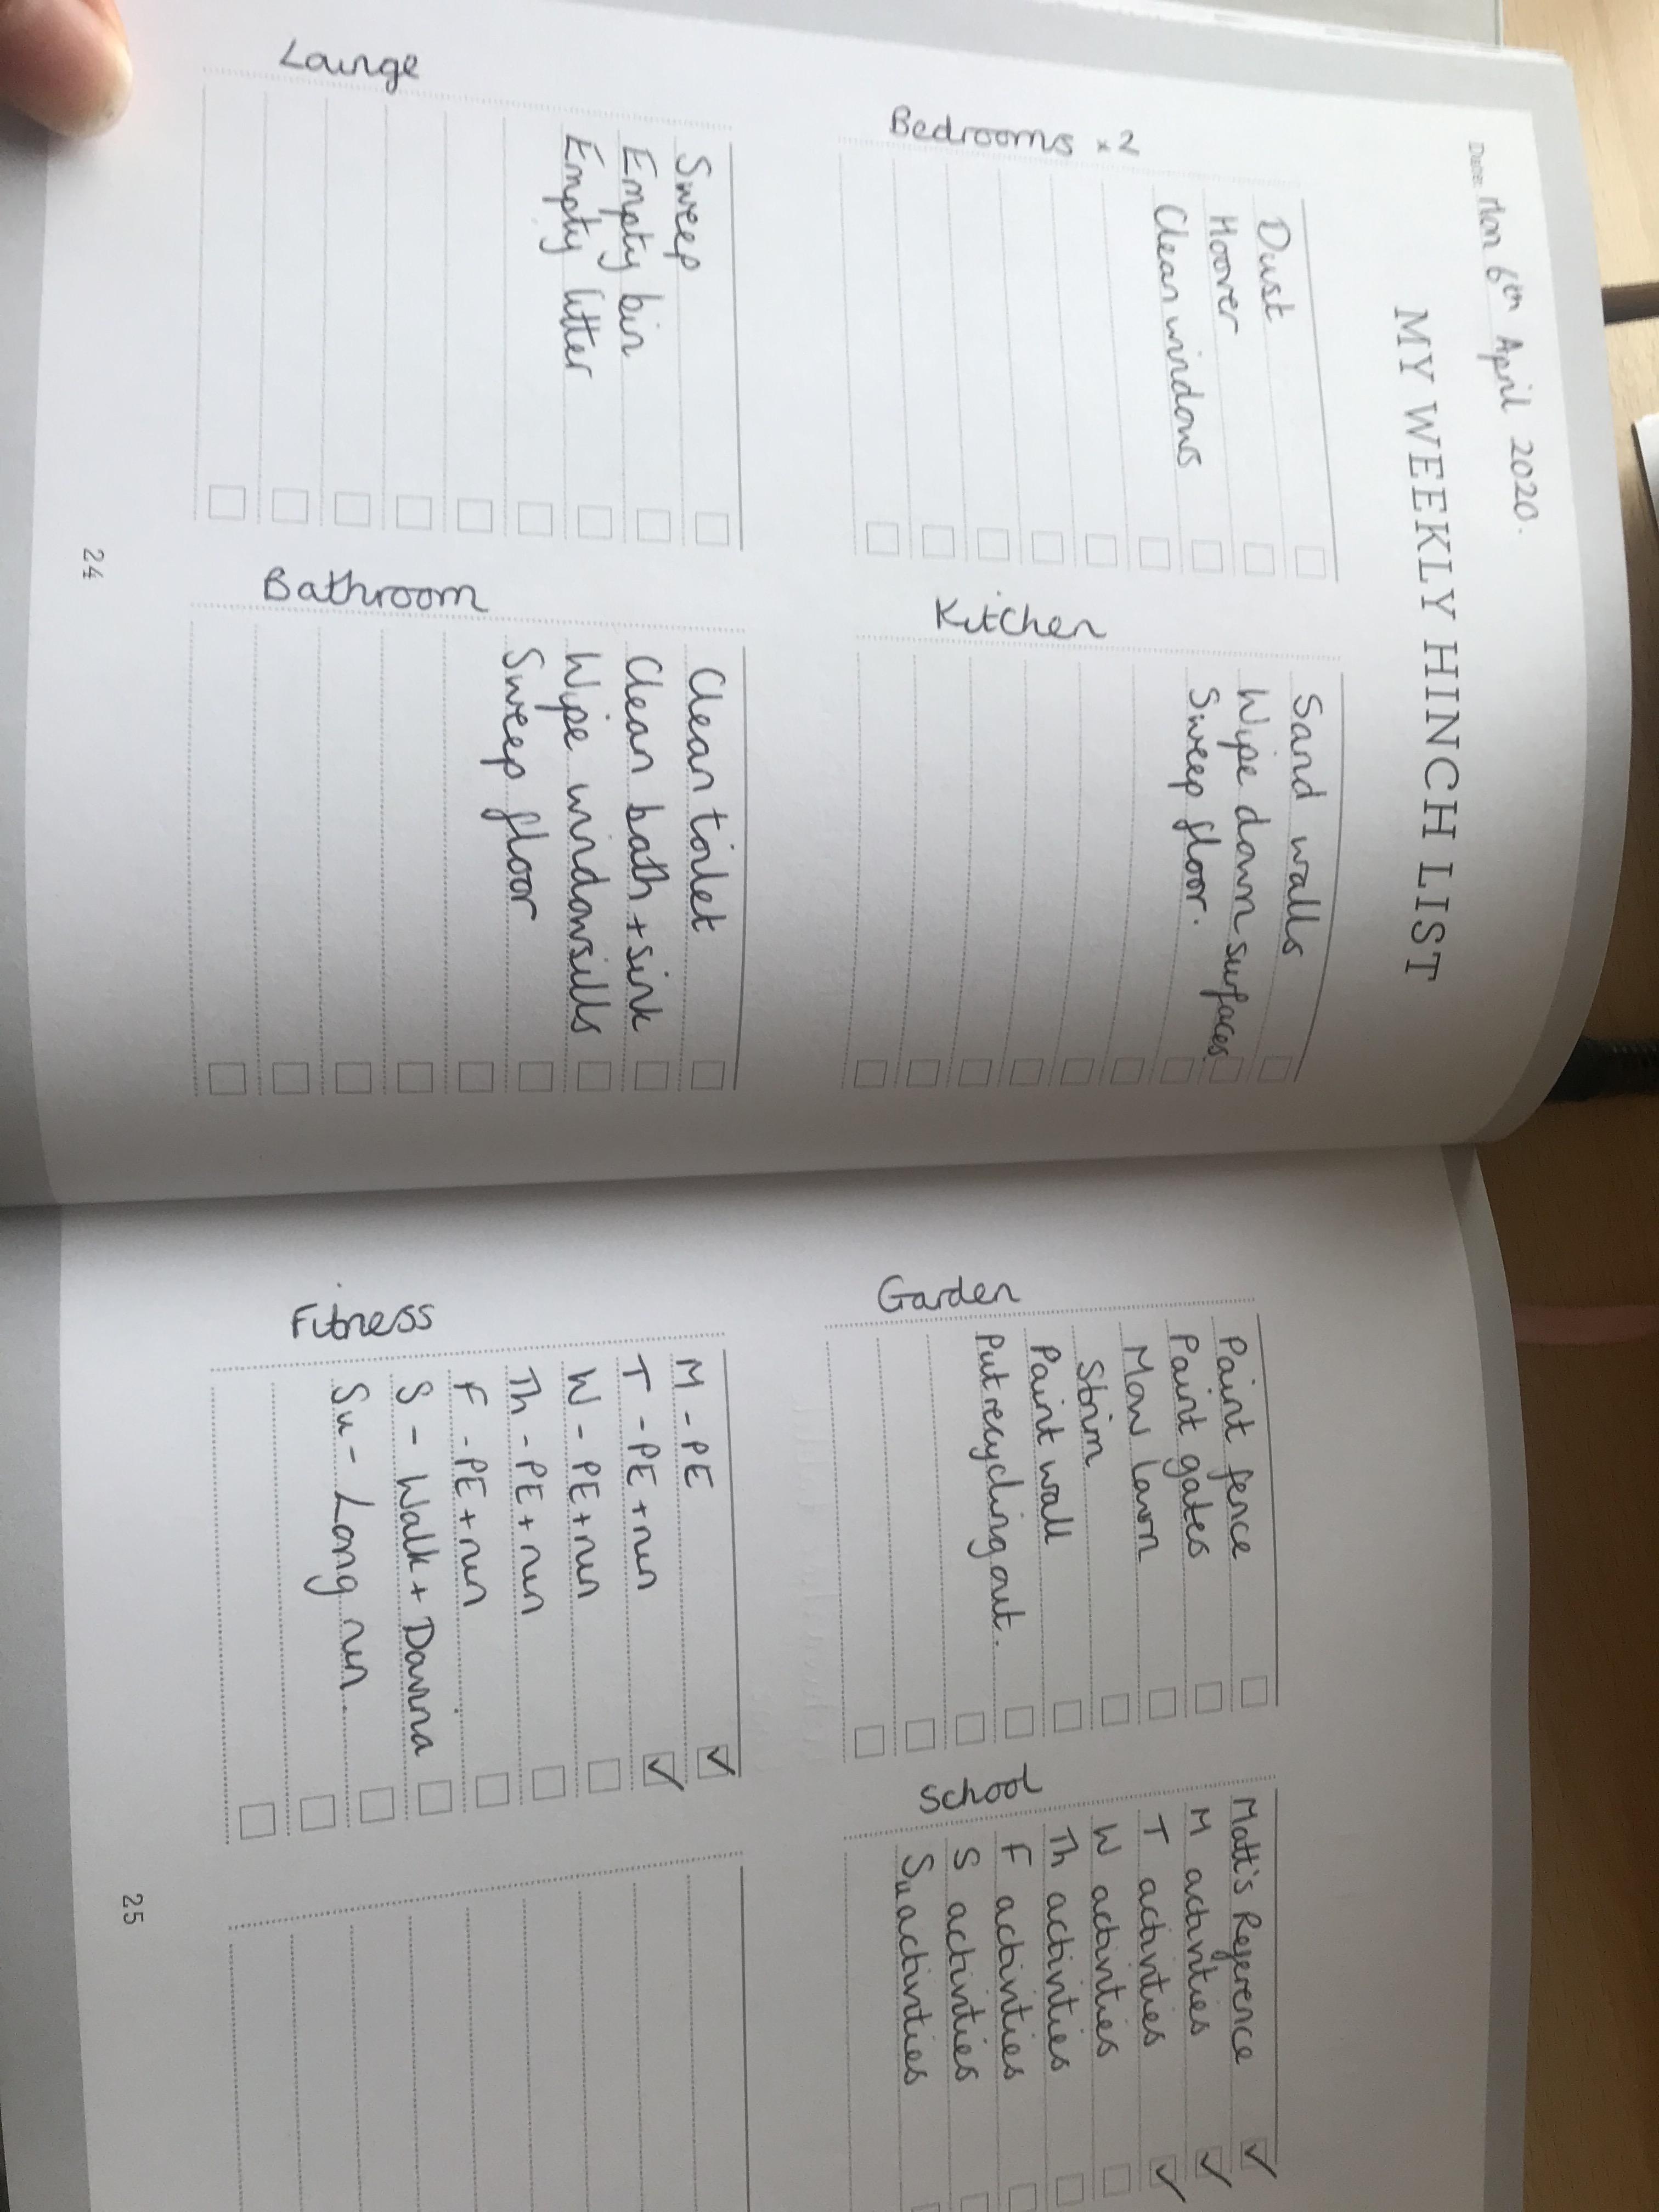 Date: Mon 6th April 2020.
MY WEEKLY HINCH LIST
Bedrooms x2
Dust
Hoover
Clean windows
Kitchen
Sand walls
Wipe down surfaces
Sweep floor.
Lounge
Sweep
Empty bin
Empty litter
Bathroom
Clean toilet
Clean bath + sink
Wipe windowsills
Sweep floor
24
Garden
Paint fence
Paint gates
Mow lawn
Strim
Paint wall
Put recycling out.
School
Matt's Reference
M activities
T activities
W activities
Th activities
F activities
S activities
Su activities
Fitness
M - PE
T - PE + run
W - PE + run
Th - PE + run
F - PE + run
S - Walk + Davina
Su - Long run
25